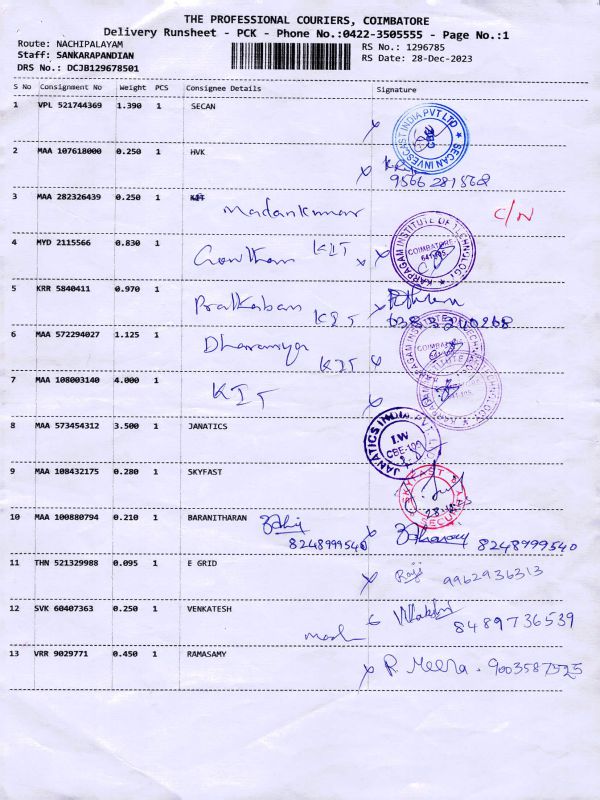 THE PROFESSIONAL COURIERS, COIMBATORE
Delivery Runsheet - PCK - Phone No.:0422-3505555 - Page No.:1
Route: NACHIPALAYAM
RS No.: 1296785
Staff: SANKARAPANDIAN
RS Date: 28-Dec-2023
DRS No.: DCJB129678501
S No Consignment No Weight PCS Consignee Details Signature
1 VPL 521744369 1.390 1 SECAN
SECAN INVESCAST INDIA PVT LTD
CBE
2 MAA 107618000 0.250 1 HVK
9566281568
3 MAA 282326439 0.250 1
Madankumar
C/N
4 MYD 2115566 0.830 1
Gowtham KIT
KARPAGAM INSTITUTE OF TECHNOLOGY
COIMBATORE
641 105
5 KRR 5840411 0.970 1
KIT
6383240268
6 MAA 572294027 1.125 1
KIT
7 MAA 108003140 4.000 1
KIT
8 MAA 573454312 3.500 1 JANATICS
JANATICS INDIA PVT
I.W
9 MAA 108432175 0.280 1 SKYFAST
SKYFAST
SECURI
10 MAA 100880794 0.210 1 BARANITHARAN
8248999540
8248999540
11 THN 521329988 0.095 1 E GRID
Raji 9962936313
12 SVK 60407363 0.250 1 VENKATESH
8489736539
13 VRR 9029771 0.450 1 RAMASAMY
R. Meena. 9003587525